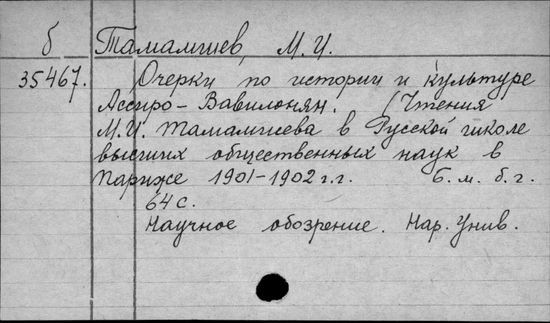 б Тамамшев, М. И.
35467. Очерки по истории и культуре
Ассиро-Вавилонян. (Чтения
М.И. Тамамшева в Русской школе
высших общественных наук в
Париже 1901-1902 г.г. Б. м. б. г.
64 с.
Научное обозрение. Нар. Унив.